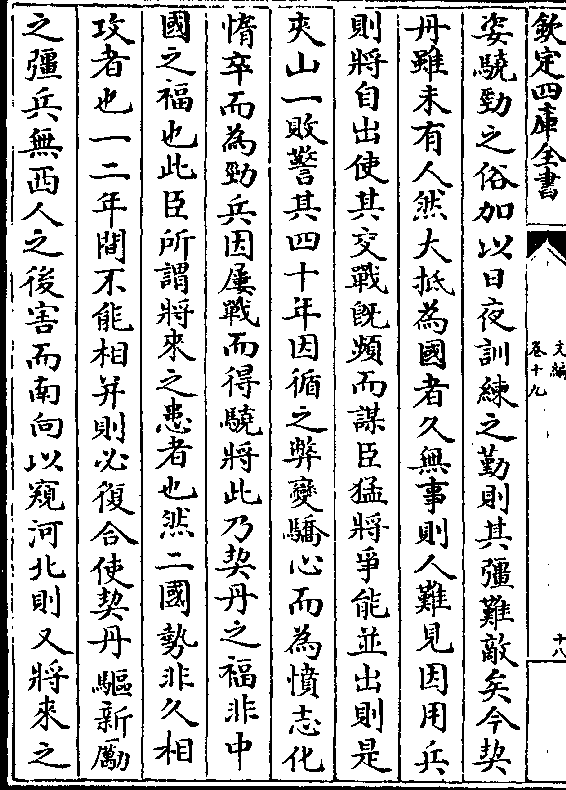 欽定四庫全書
文編
卷十九
十八
姿驍勁之俗加以日夜訓練之勤則其彊難敵矣今契
丹雖未有人然大抵為國者久無事則人難見因用兵
則將自出使其交戰旣頻而謀臣猛將爭能並出則是
夾山一敗警其四十年因循之弊變驕心而為憤志化
惰卒而為勁兵因屢戰而得驍將此乃契丹之福非中
國之福也此臣所謂將來之患者也然二國勢非久相
攻者也一二年間不能相并則必復合使契丹驅新勵
之彊兵無西人之後害而南向以窺河北則又將來之